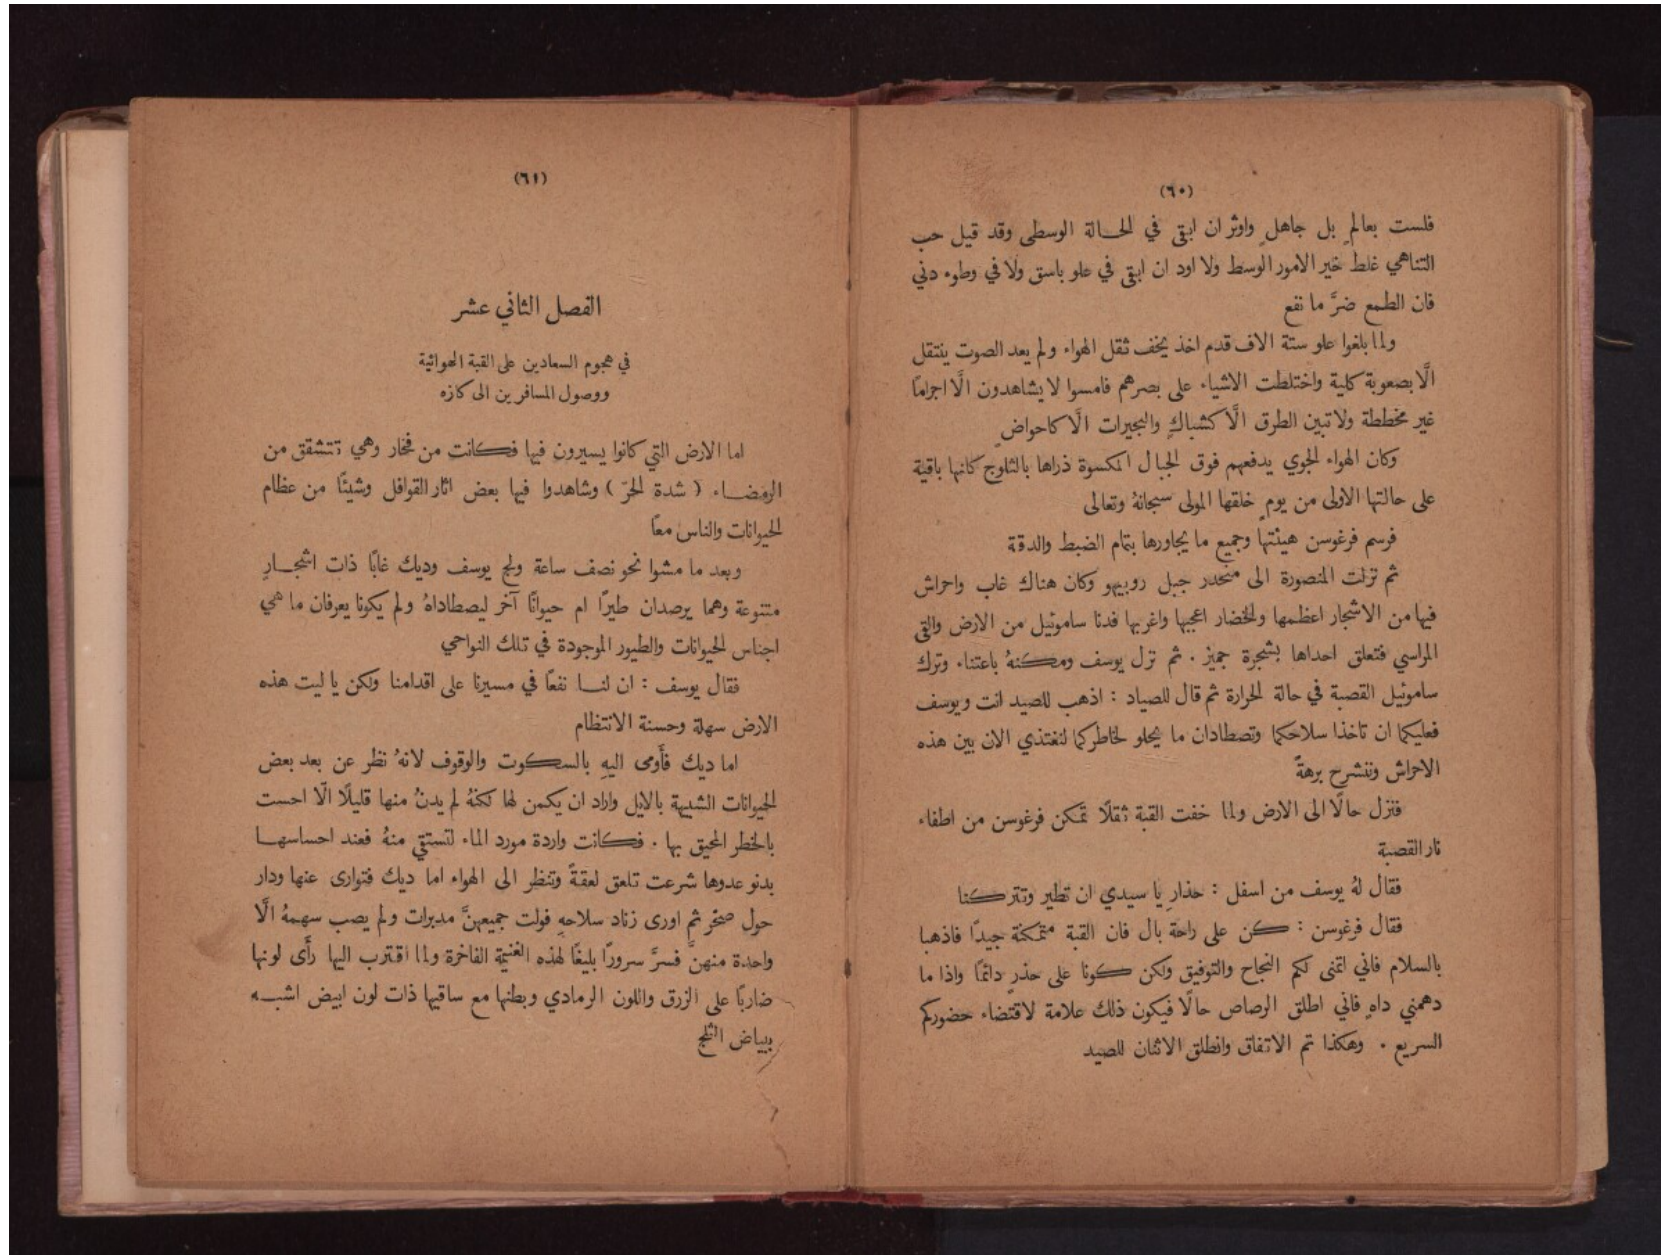 (٦٠)
فلست بعالمٍ بل جاهلٍ واوثر ان ابقى في الحــالة الوسطى وقد قيل حب
التناهي غلط خير الامور الوسط ولا اود ان ابقى في علو باسق ولا في وطوء دني
فان الطمع ضرَّ ما نفع
ولما بلغوا علو ستة الاف قدم اخذ يخف ثقل الهواء ولم يعد الصوت ينتقل
الَّا بصعوبة كلية واختلطت الاشياء على بصرهم فامسوا لا يشاهدون الَّا اجرامًا
غير مخططة ولا تبين الطرق الَّا كشباكٍ والبحيرات الَّا كاحواضٍ
وكان الهواء الجوي يدفعهم فوق الجبال المكسوة ذراها بالثلوج كانها باقية
على حالتها الاولى من يومٍ خلقها المولى سبحانهُ وتعالى
فرسم فرغوسن هيئتها وجميع ما يجاورها بتمام الضبط والدقة
ثم نزلت المنصورة الى منحدر جبل روبيهو وكان هناك غاب واحراش
فيها من الاشجار اعظمها والخضار اعجبها واغربها فدنا ساموئيل من الارض والقى
المراسي فتعلق احداها بشجرة جميز . ثم نزل يوسف ومكنهُ باعتناء وترك
ساموئيل القصبة في حالة الحرارة ثم قال للصياد : اذهب للصيد انت ويوسف
فعليكما ان تاخذا سلاحكما وتصطادان ما يحلو لخاطركما لنغتذي الان بين هذه
الاحراش وننشرح برهةً
فنزل حالًا الى الارض ولما خفت القبة ثقلًا تمكن فرغوسن من اطفاء
نار القصبة
فقال لهُ يوسف من اسفل : حذارِ يا سيدي ان تطير وتتركنا
فقال فرغوسن : كن على راحة بال فان القبة متمكنة جيدًا فاذهبا
بالسلام فاني اتمنى لكم النجاح والتوفيق ولكن كونا على حذرٍ دائمًا واذا ما
دهمني داهٍ فاني اطلق الرصاص حالًا فيكون ذلك علامة لاقتضاء حضوركم
السريع . وهكذا تم الاتفاق وانطلق الاثنان للصيد
(٦١)
الفصل الثاني عشر
في هجوم السعادين على القبة الهوائية
ووصول المسافرين الى كازه
اما الارض التي كانوا يسيرون فيها فكانت من فخار وهي تتشقق من
الرمضــاء ( شدة الحرّ ) وشاهدوا فيها بعض اثار القوافل وشيئًا من عظام
الحيوانات والناس معًا
وبعد ما مشوا نحو نصف ساعة ولج يوسف وديك غابًا ذات اشجــارٍ
متنوعة وهما يرصدان طيرًا ام حيوانًا آخر ليصطاداهُ ولم يكونا يعرفان ما هي
اجناس الحيوانات والطيور الموجودة في تلك النواحي
فقال يوسف : ان لنــا نفعًا في مسيرنا على اقدامنا ولكن يا ليت هذه
الارض سهلة وحسنة الانتظام
اما ديك فأَومى اليهِ بالسكوت والوقوف لانهُ نظر عن بعد بعض
الحيوانات الشبيهة بالايل واراد ان يكمن لها لكنهُ لم يدنُ منها قليلًا الَّا احست
بالخطر المحيق بها . فكانت واردة مورد الماء لتستقي منهُ فعند احساسهــا
بدنو عدوها شرعت تلعق لعقةً وتنظر الى الهواء اما ديك فتوارى عنها ودار
حول صخرٍ ثم اورى زناد سلاحهِ فولت جميعهنَّ مدبرات ولم يصب سهمهُ الَّا
واحدة منهنَّ فسرَّ سرورًا بليغًا لهذه الغنيمة الفاخرة ولما اقترب اليها رأَى لونها
ضاربًا على الزرق واللون الرمادي وبطنها مع ساقيها ذات لون ابيض اشبــه
ببياض الثلج